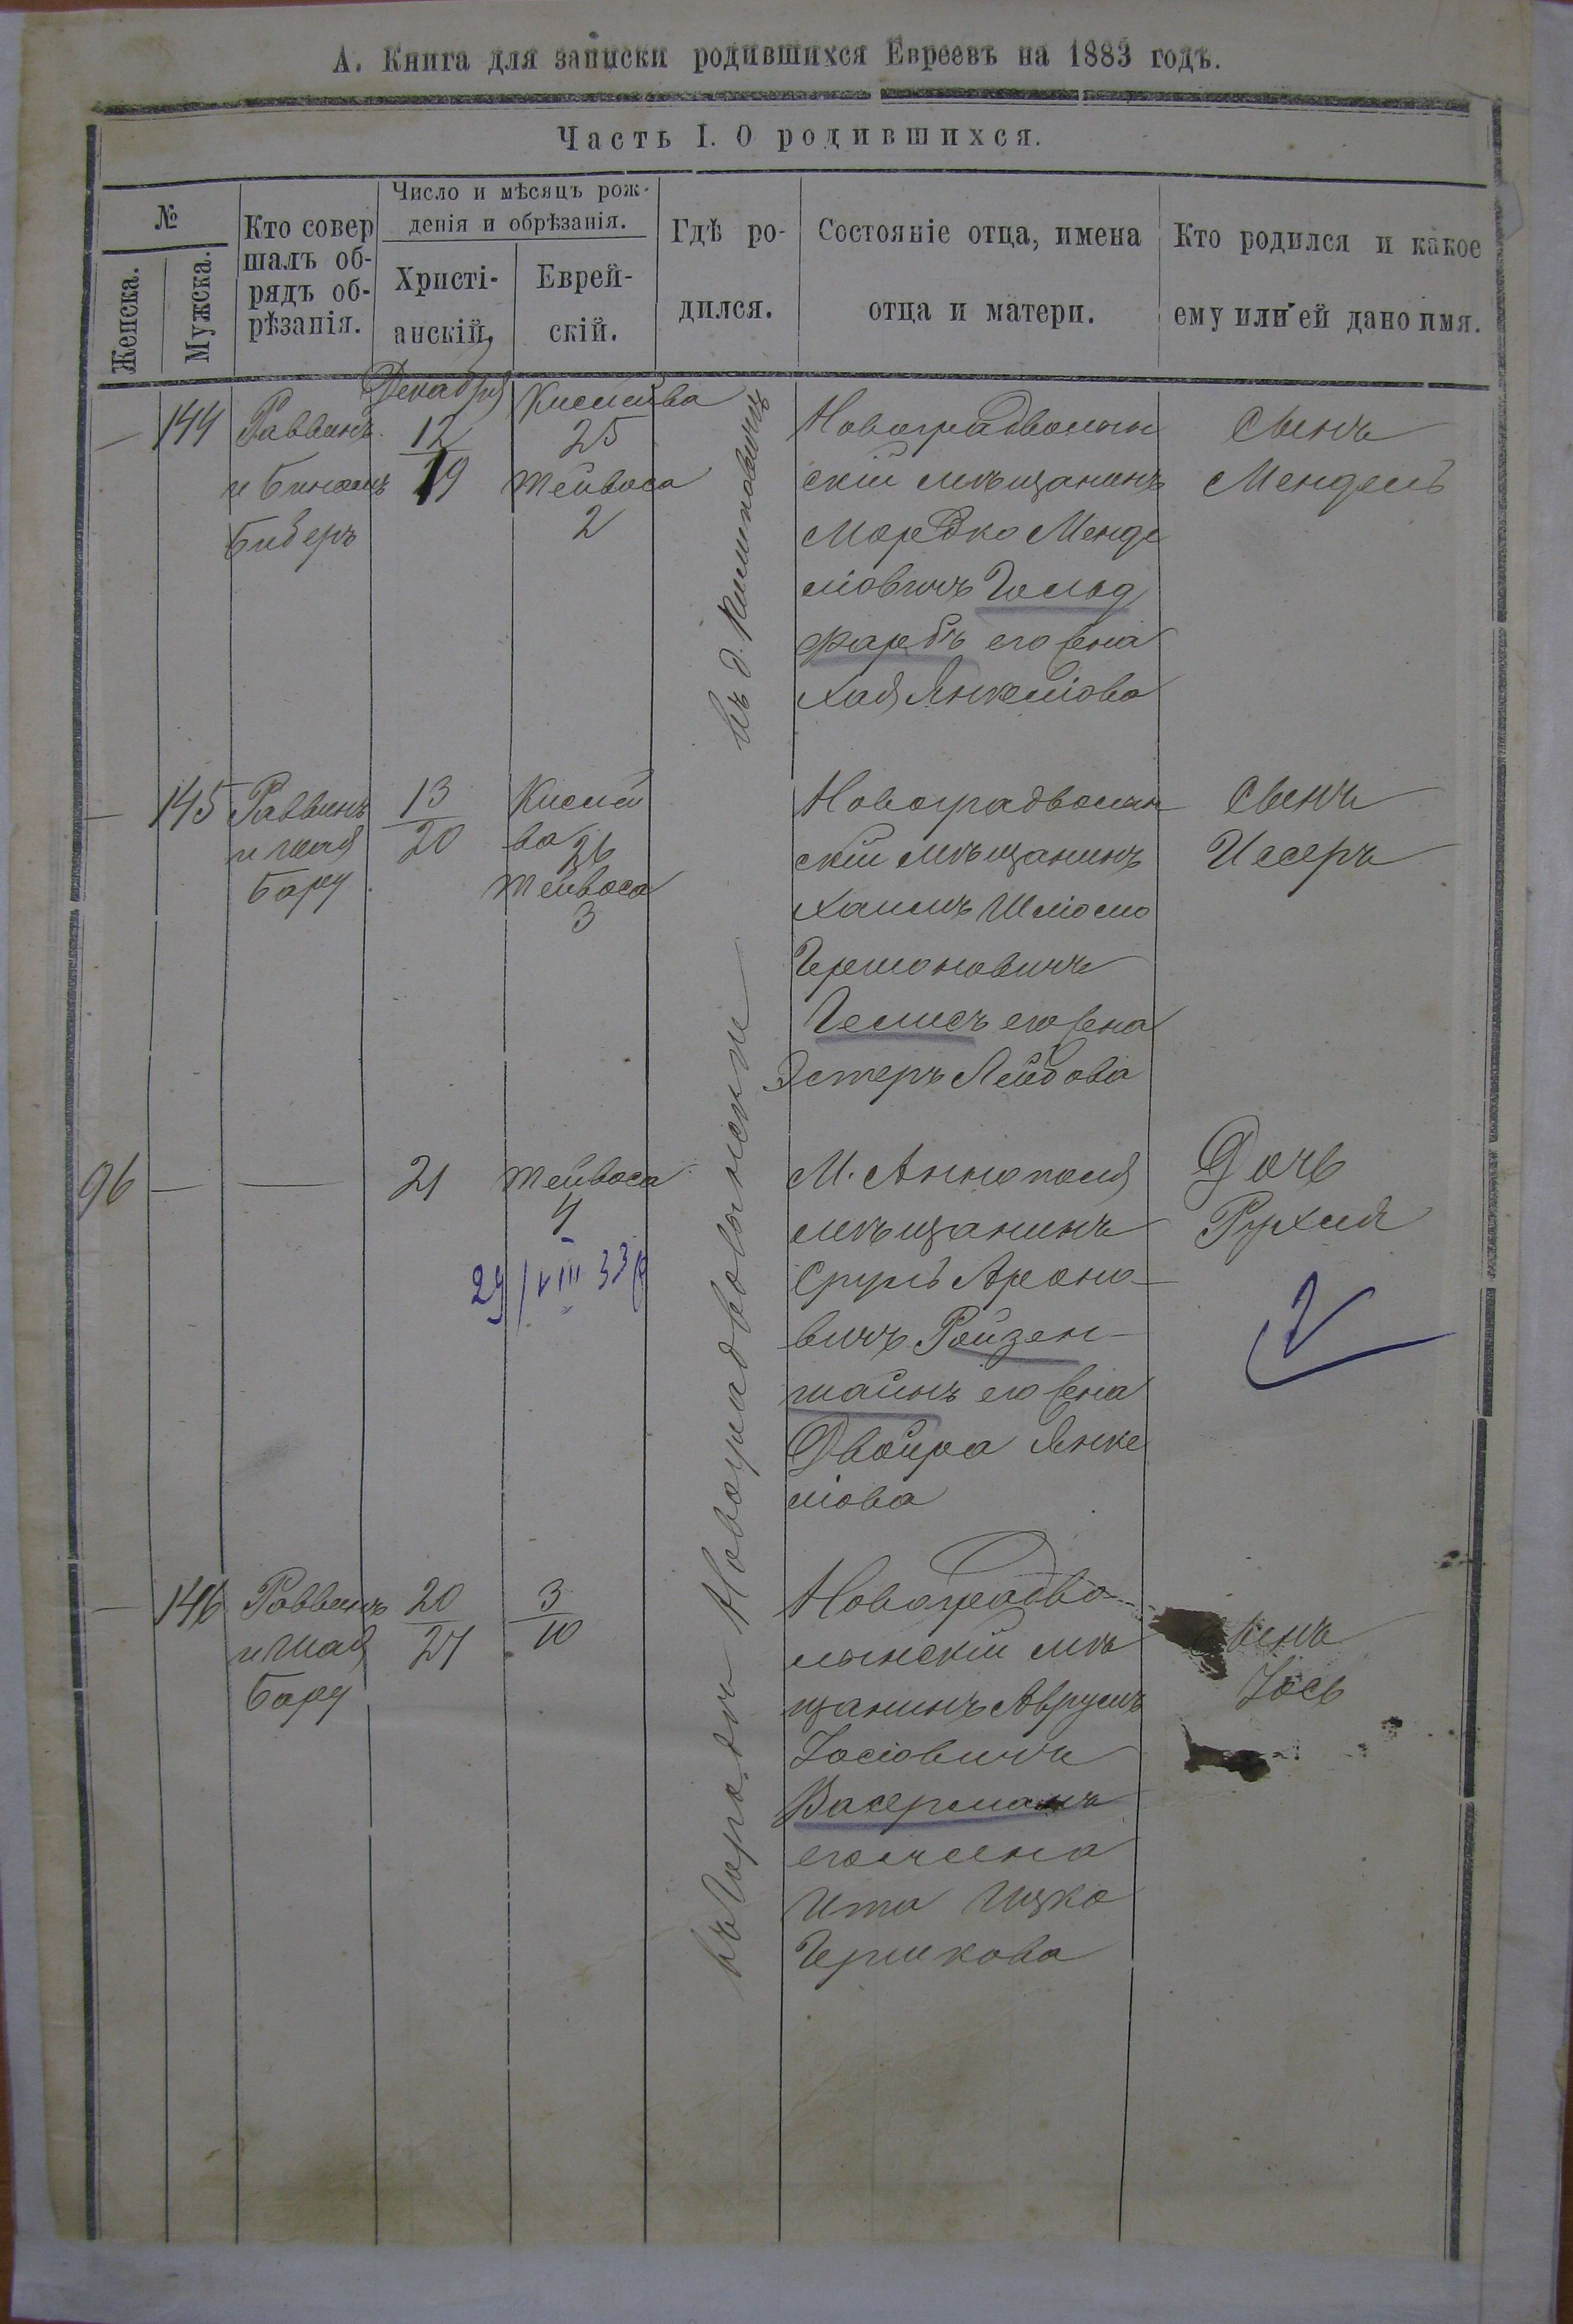 А. Книга для записки родившихся Евреевъ на 1883 годъ.
Часть I. О родившихся.
№
Женска.
Мужска.
Кто совер
шалъ об-
рядъ об-
рѣзанія.
Число и мѣсяцъ рож-
денія и обрѣзанія.
Христі-
анскій.
Еврей-
скій.
Гдѣ ро-
дился.
Состояніе отца, имена
отца и матери.
Кто родился и какое
ему или ей дано имя.
—
144
Раввинъ
и Бинемъ
Бидеръ
Декабря
12
19
Кислева
25
Тейвоса
2
въ д.
Новоградволын
скій мѣщанинъ
Мордко Менде
ліовичъ Гольд
фарбъ его жена
Хая Янкеліова
Сынъ
Мендель
—
145
Раввинъ
и Шая
Бару
13
20
Кисле
ва 26
Тейвоса
3
Новоградволын
скій мѣщанинъ
Хаимъ Шліомо
Гершоновичъ
его жена
Эстеръ Лейбова
Сынъ
Иссеръ
96
—
—
21
Тейвоса
4
29/VIII 33 р
въ Городѣ Новоградволынскѣ
М. Аннополя
мѣщанинъ
Сруль Ароно-
вичъ Ройзен-
штайнъ его жена
Двойра Янке
ліова
Дочь
Рухля
—
146
Раввинъ
и Шая
Бару
20
27
3
10
Новоградво-
лынскій мѣ
щанинъ Аврумъ
Іосіовичъ
Васерманъ
его жена
Ита Ицко
Гершкова
Сынъ
Іось